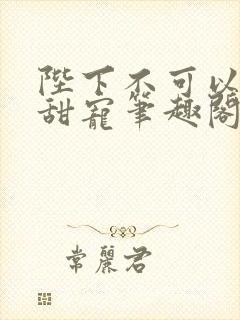 陛下不可以
甜寵筆趣閣
常麗君